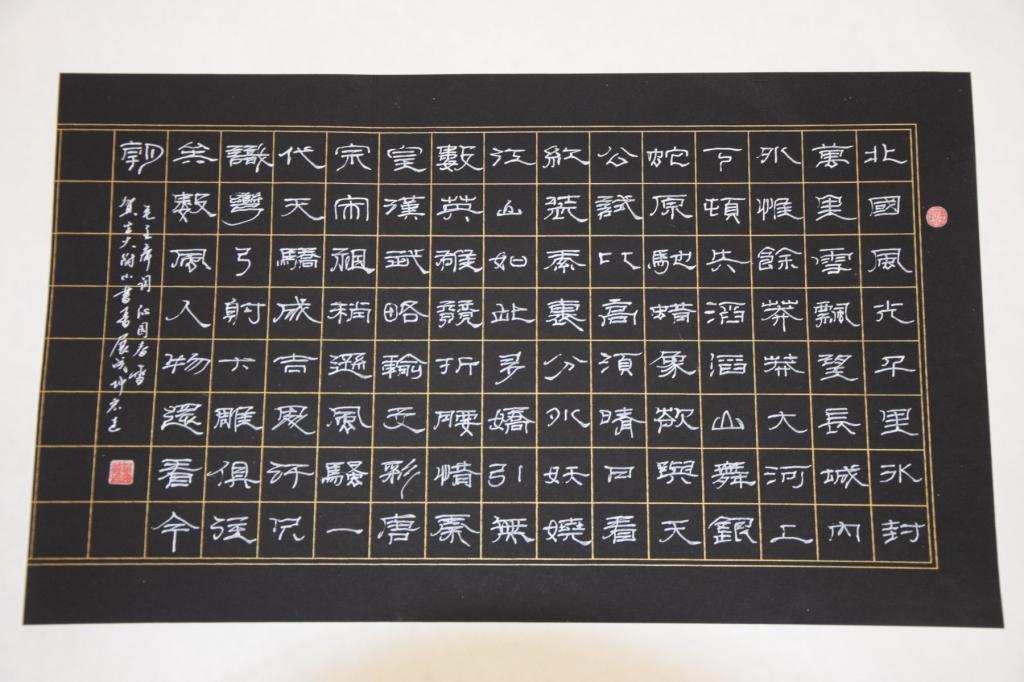 北國風光千里冰封
萬里雪飄望長城內
外惟餘莽莽大河上
下頓失滔滔山舞銀
蛇原馳蜡象欲與天
公試比高須晴日看
紅裝素裹分外妖嬈
江山如此多嬌引無
數英雄競折腰惜秦
皇漢武略輸文彩唐
宗宋祖稍遜風騷一
代天驕成吉思汗只
識彎弓射大雕俱往
矣數風人物還看今
朝
毛主席词沁园春雪
賀吉大附小書畫展